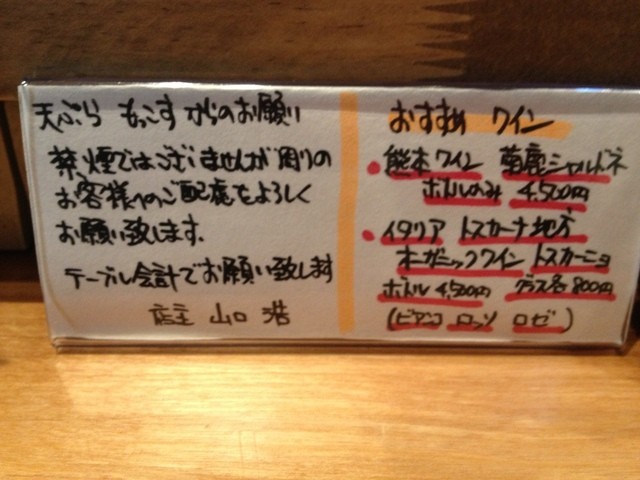 天ぷら もっこす からのお願い
禁煙ではございませんが周りの
お客様へのご配慮をよろしく
お願い致します。
テーブル会計でお願い致します
店主 山口 浩
おすすめ ワイン
熊本ワイン 菊鹿シャルドネ
ボトルのみ 4,500円
イタリア トスカーナ地方
オーガニックワイン トスカーニョ
ボトル 4,500円 グラス各800円
(ビアンコ ロッソ ロゼ)